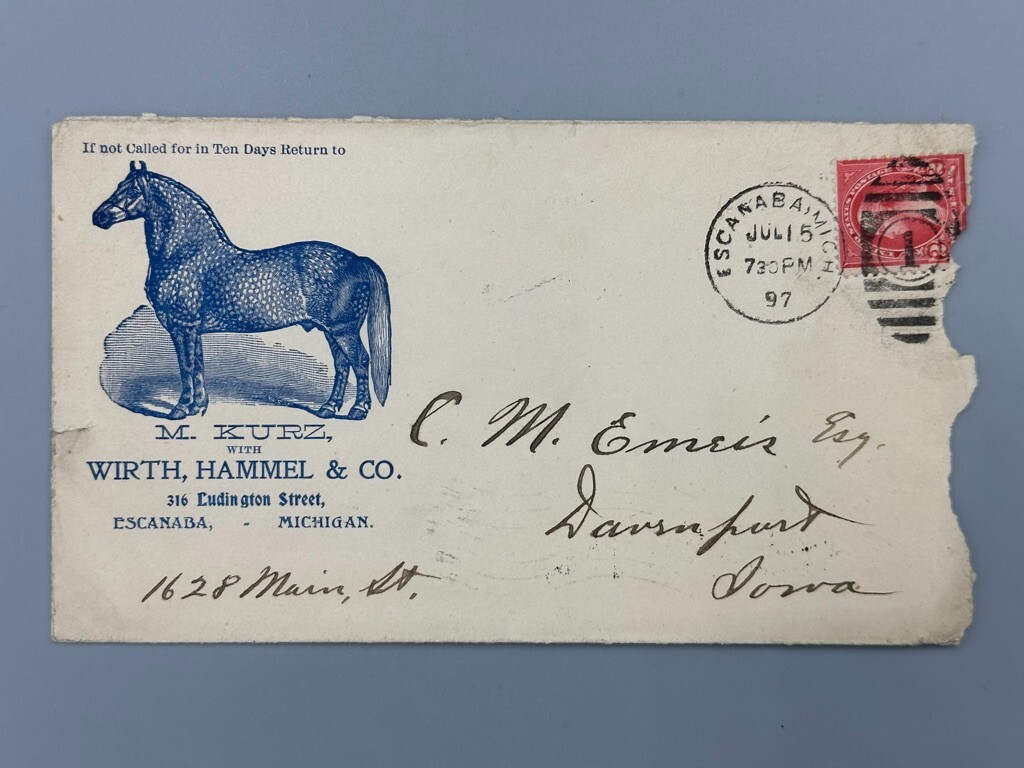 If not Called for in Ten Days Return to
M. KURZ,
WITH
WIRTH, HAMMEL & CO.
316 Ludington Street,
ESCANABA, - MICHIGAN.
ESCANABA, MICH
JUL 15
730PM
97
1
C. M. Emeis Esq.
Davenport
Iowa
1628 Main, St.